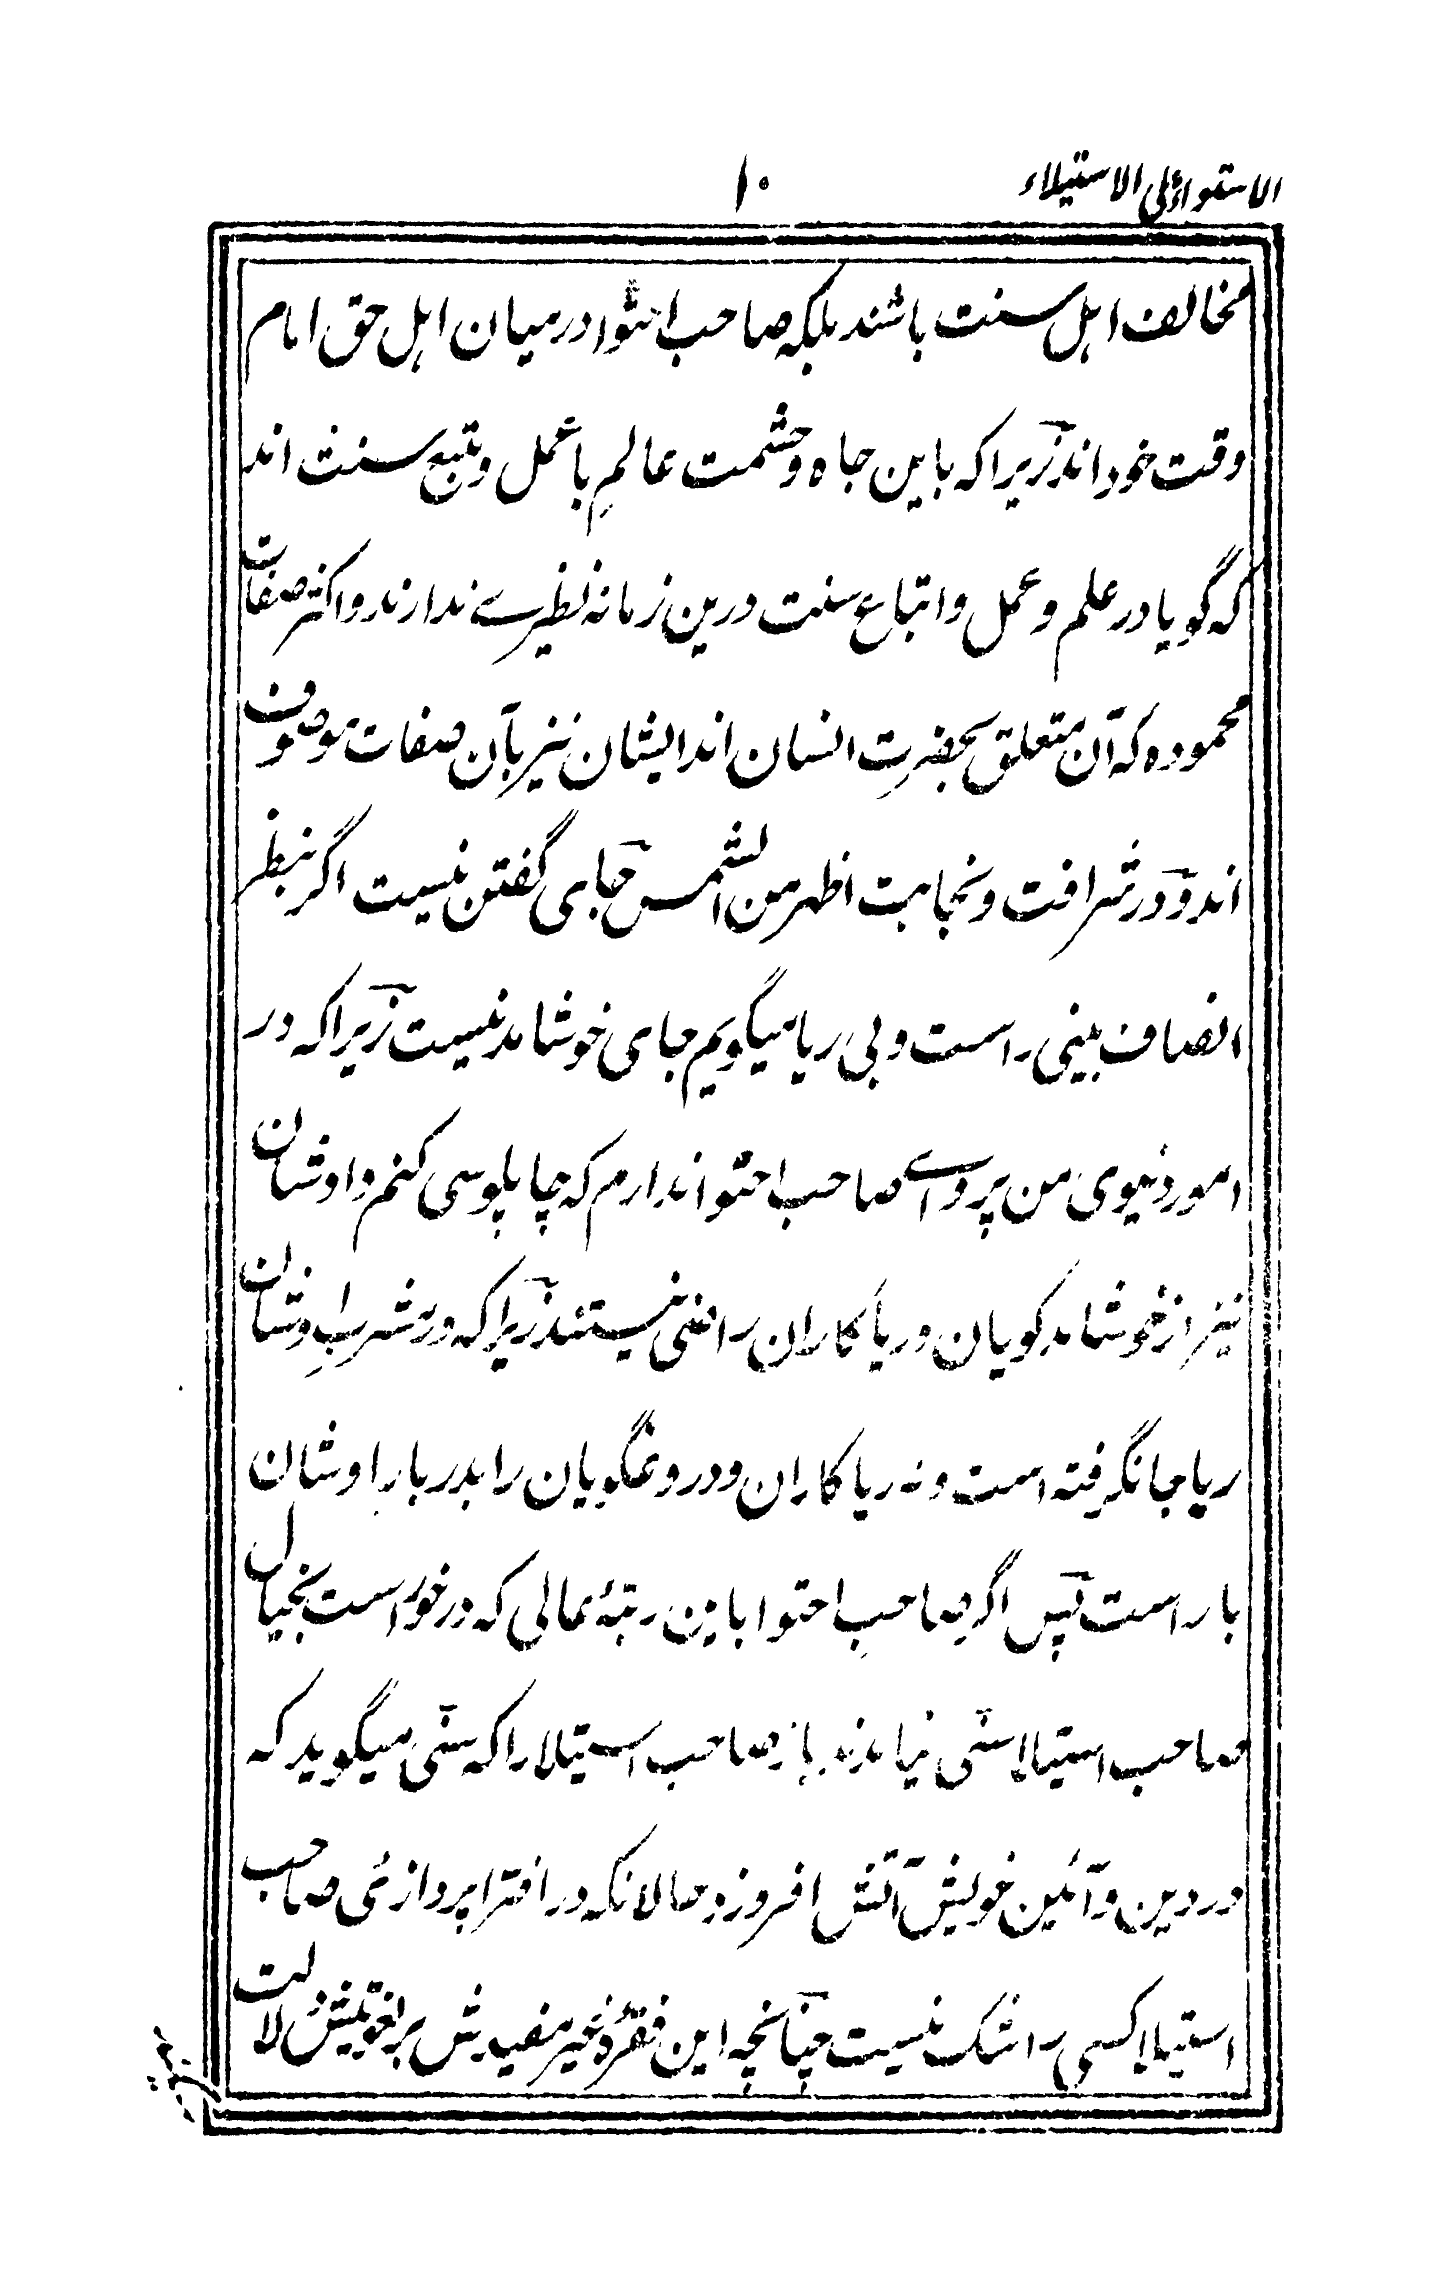 الاستواء علی الاستیلاء
۱۰
مخالف اہل سنت باشند بلکہ صاحب احتوا درمیان اہل حق امام
وقت خود اند زیرا کہ باین جاہ و حشمت عالمِ با عمل و متبع سنت اند
کہ گویا در علم و عمل و اتباع سنت درین زمانہ نظیرے ندارند و اکثر صفات
محمودہ کہ آن متعلق بحضرت انسان اند ایشان نیز بآن صفات موصوف
اند و در شرافت و نجابت اظہر من الشمس جای گفتن نیست اگر بنظر
انصاف بینی راست و بی ریا میگویم جای خوشامد نیست زیرا کہ در
امور دنیوی من پرواے صاحب احتوا ندارم کہ چاپلوسی کنم و اوشان
نیز از خوشامد گویان و ریا کاران راضی نیستند زیرا کہ در مشربِ اوشان
ریا جا نگرفتہ است و نہ ریا کاران و دروغگویان را بدربار اوشان
بار است پس اگر صاحبِ احتوا باین رتبۂ عالی کہ در خور است بخیال
صاحب استیلا سنّی نیامدند باز صاحب استیلا را کہ سنّی میگوید کہ
در دین و آئین خویش آتش افروزد حالانکہ در افترا پردازئی صاحب
استیلا کسی را شک نیست چنانچہ این فقرۂ غیر مفیدش بر لغویتش دلالت